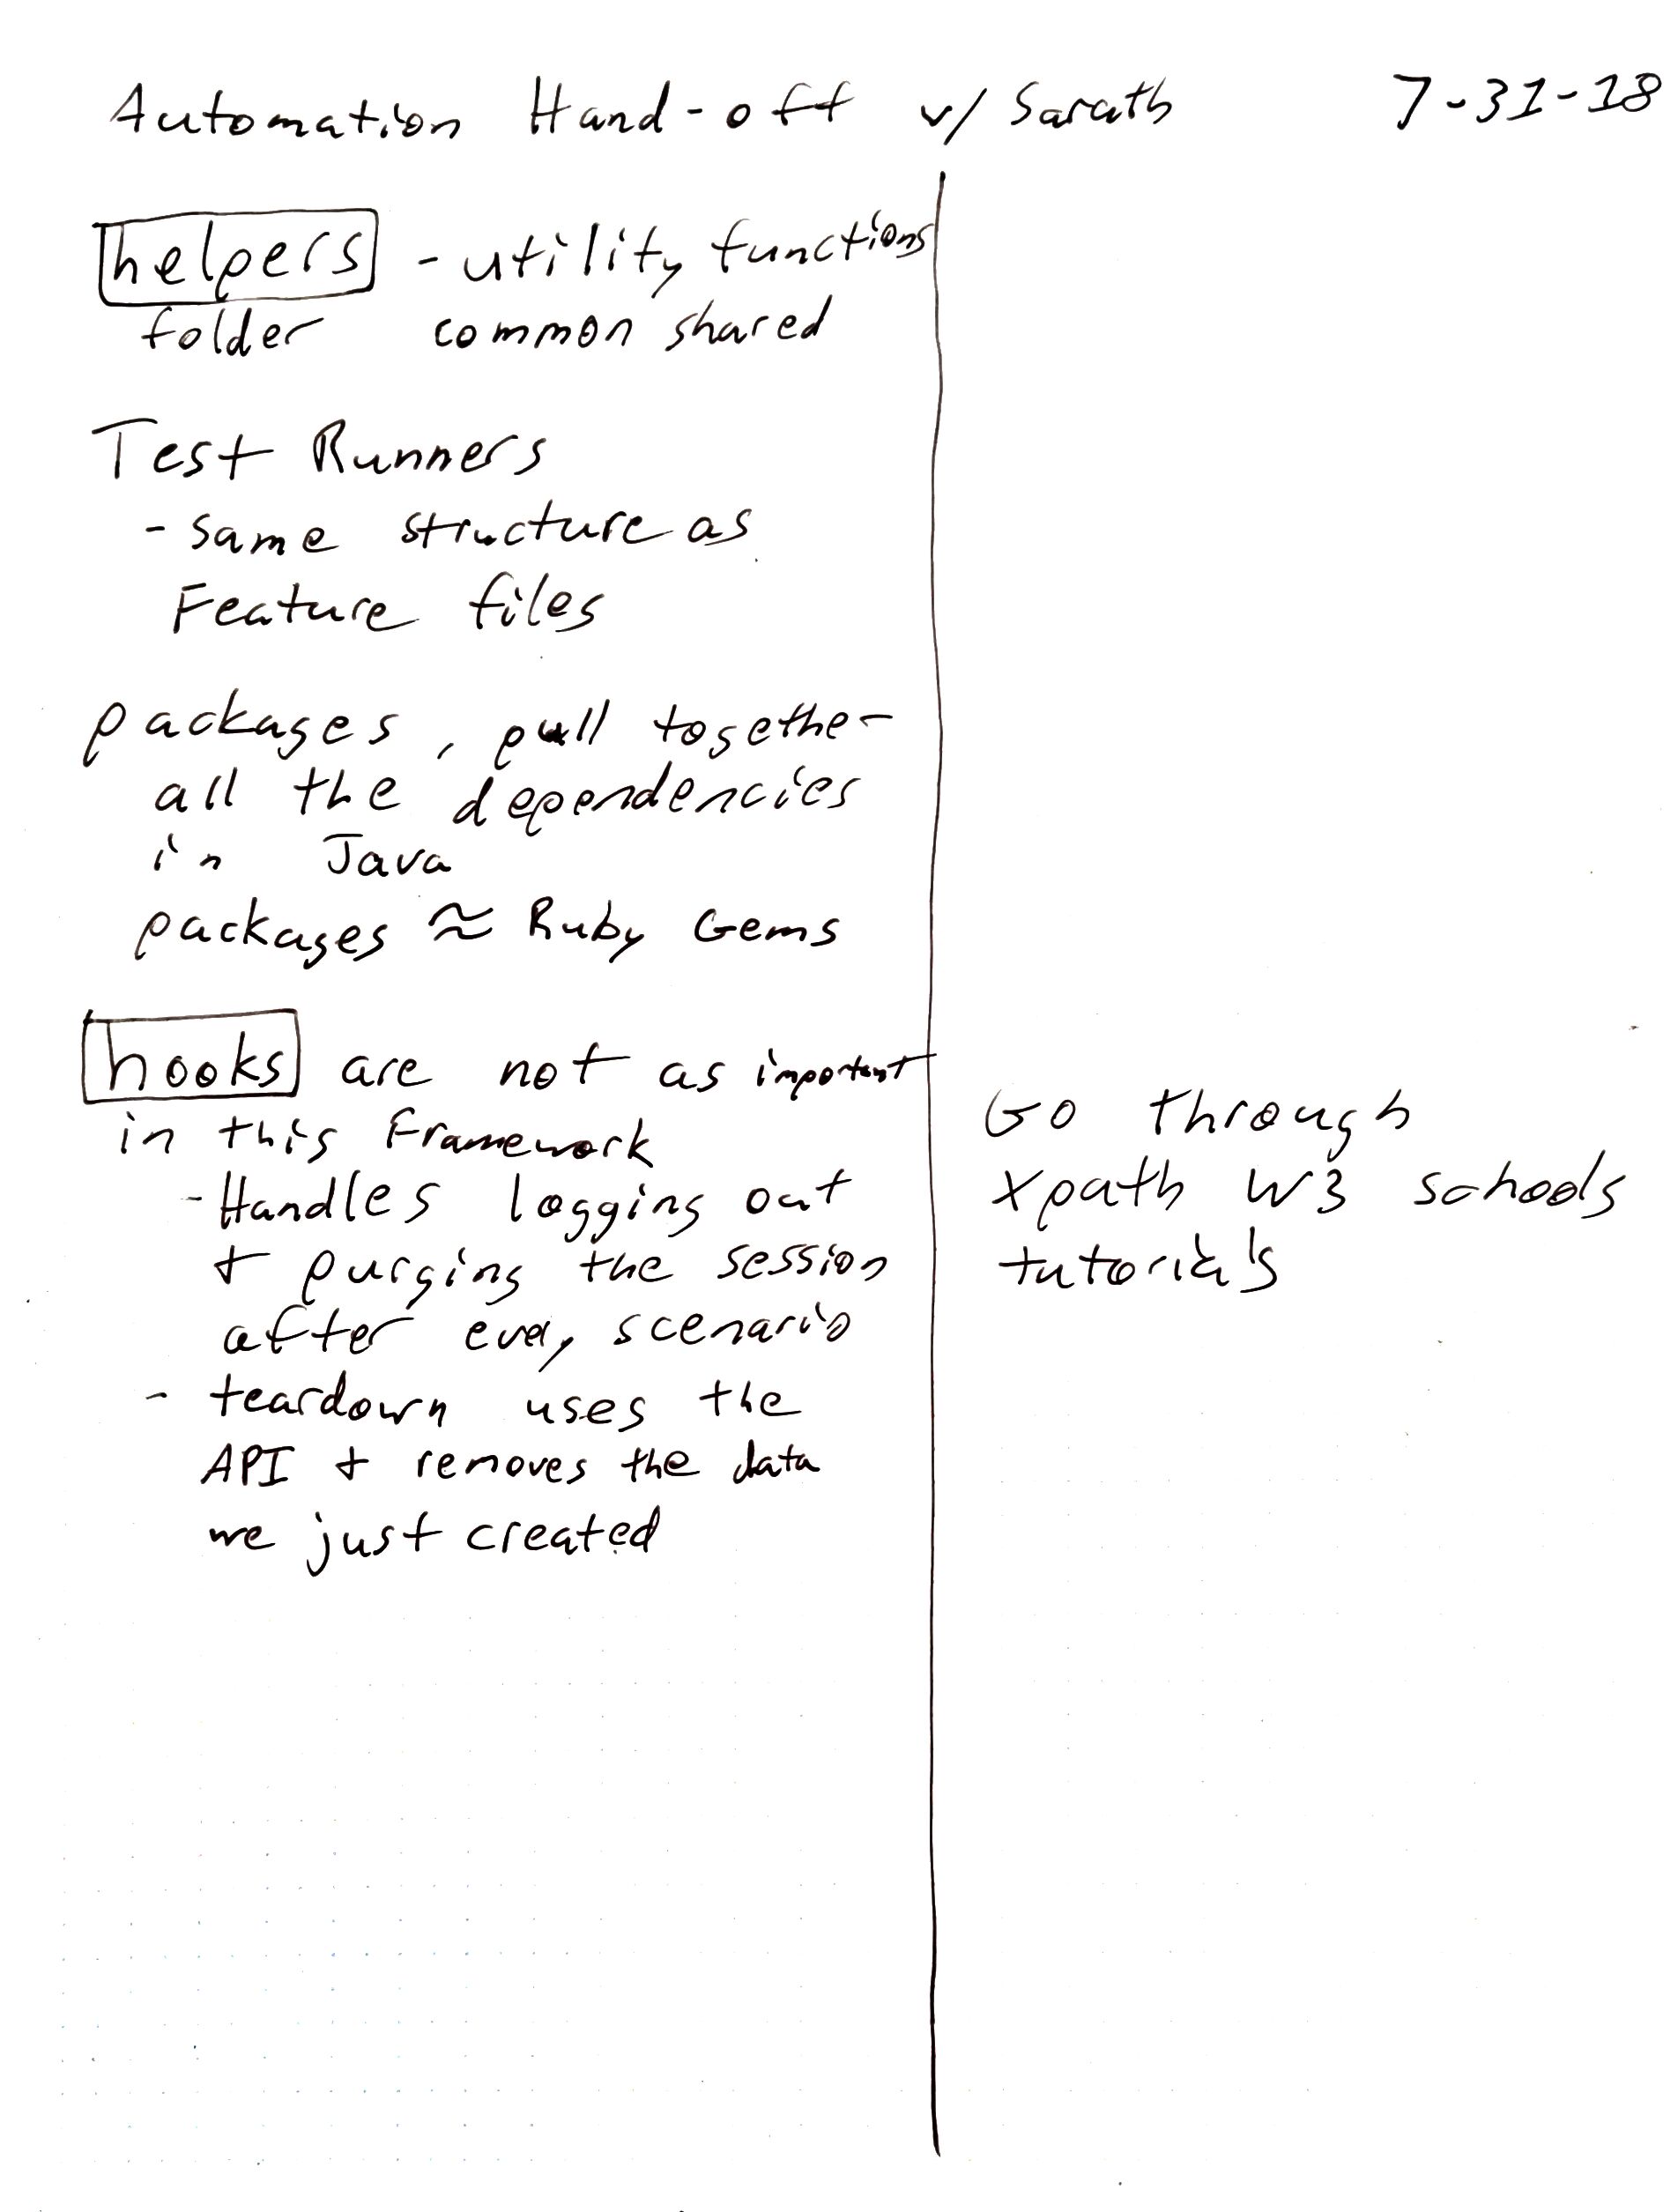 Automation Hand-off w/ Sarath 7-31-18
helpers - utility functions
folder common shared
Test Runners
- same structure as
Feature files
packages, pull together
all the dependencies
in Java
packages ≈ Ruby Gems
hooks are not as important
in this Framework
- Handles logging out
+ purging the session
after every scenario
- teardown uses the
API + removes the data
we just created
Go through
Xpath W3 schools
tutorials